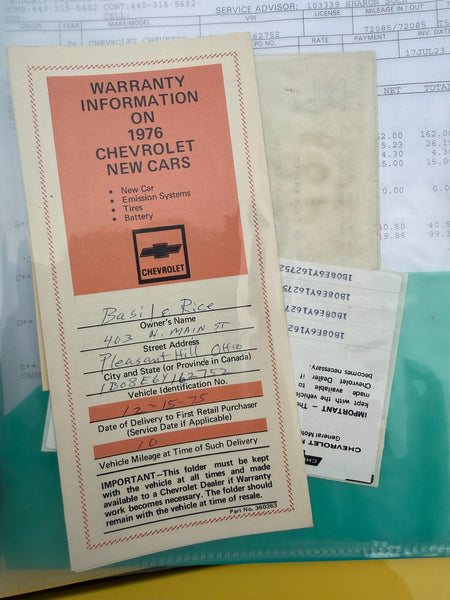 HOME:440-315-5652 CONT:440-315-5652
CELL:
SERVICE ADVISOR: 103339 SHARON
YEAR MAKE/MODEL VIN LICENSE MILEAGE IN / OUT
76 CHEVROLET 62752 72085/72085
PO NO. RATE PAYMENT INV. DATE
17JUL23
NET TOTAL
162.00
5.23 26.
4.30 4.30
0.00
40.50
19.86
WARRANTY
INFORMATION
ON
1976
CHEVROLET
NEW CARS
• New Car
• Emission Systems
• Tires
• Battery
CHEVROLET
Basil e Rice
Owner's Name
403 N. MAIN ST
Street Address
Pleasant Hill Ohio
City and State (or Province in Canada)
1B08E6Y162752
Vehicle Identification No.
12-15-75
Date of Delivery to First Retail Purchaser
(Service Date if Applicable)
10
Vehicle Mileage at Time of Such Delivery
IMPORTANT—This folder must be kept
with the vehicle at all times and made
available to a Chevrolet Dealer if Warranty
work becomes necessary. The folder should
remain with the vehicle at time of resale.
Part No. 360263
1B08E6Y162752
1B08E6Y16275
1B08E6Y1627
1B08E6Y162
becomes necessary.
Chevrolet Dealer if
made available to
kept with the vehicle
IMPORTANT — The
General Mot
CHEVROLET